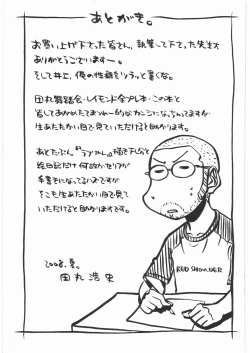 あとがき。
お買い上げ下さった皆さん、執筆して下さった先生方
ありがとうございます〜。
そして井上、俺の性癖をサラッと書くな。
田丸舞踏会・レイモンド全プレ本・この本と
皆してあわせたてまつれ的なカンジになっちゃってますが
生あたたかい目で見ていただけると助かります。
あとたぶん『ラブやん』描き下ろしと
絵日記だけ何故かセリフが
手書きになってるハズですが
そこも生あたたかい目で見て
いただけると助かります です。
2008.夏。
田丸浩史
RED SHOULDER